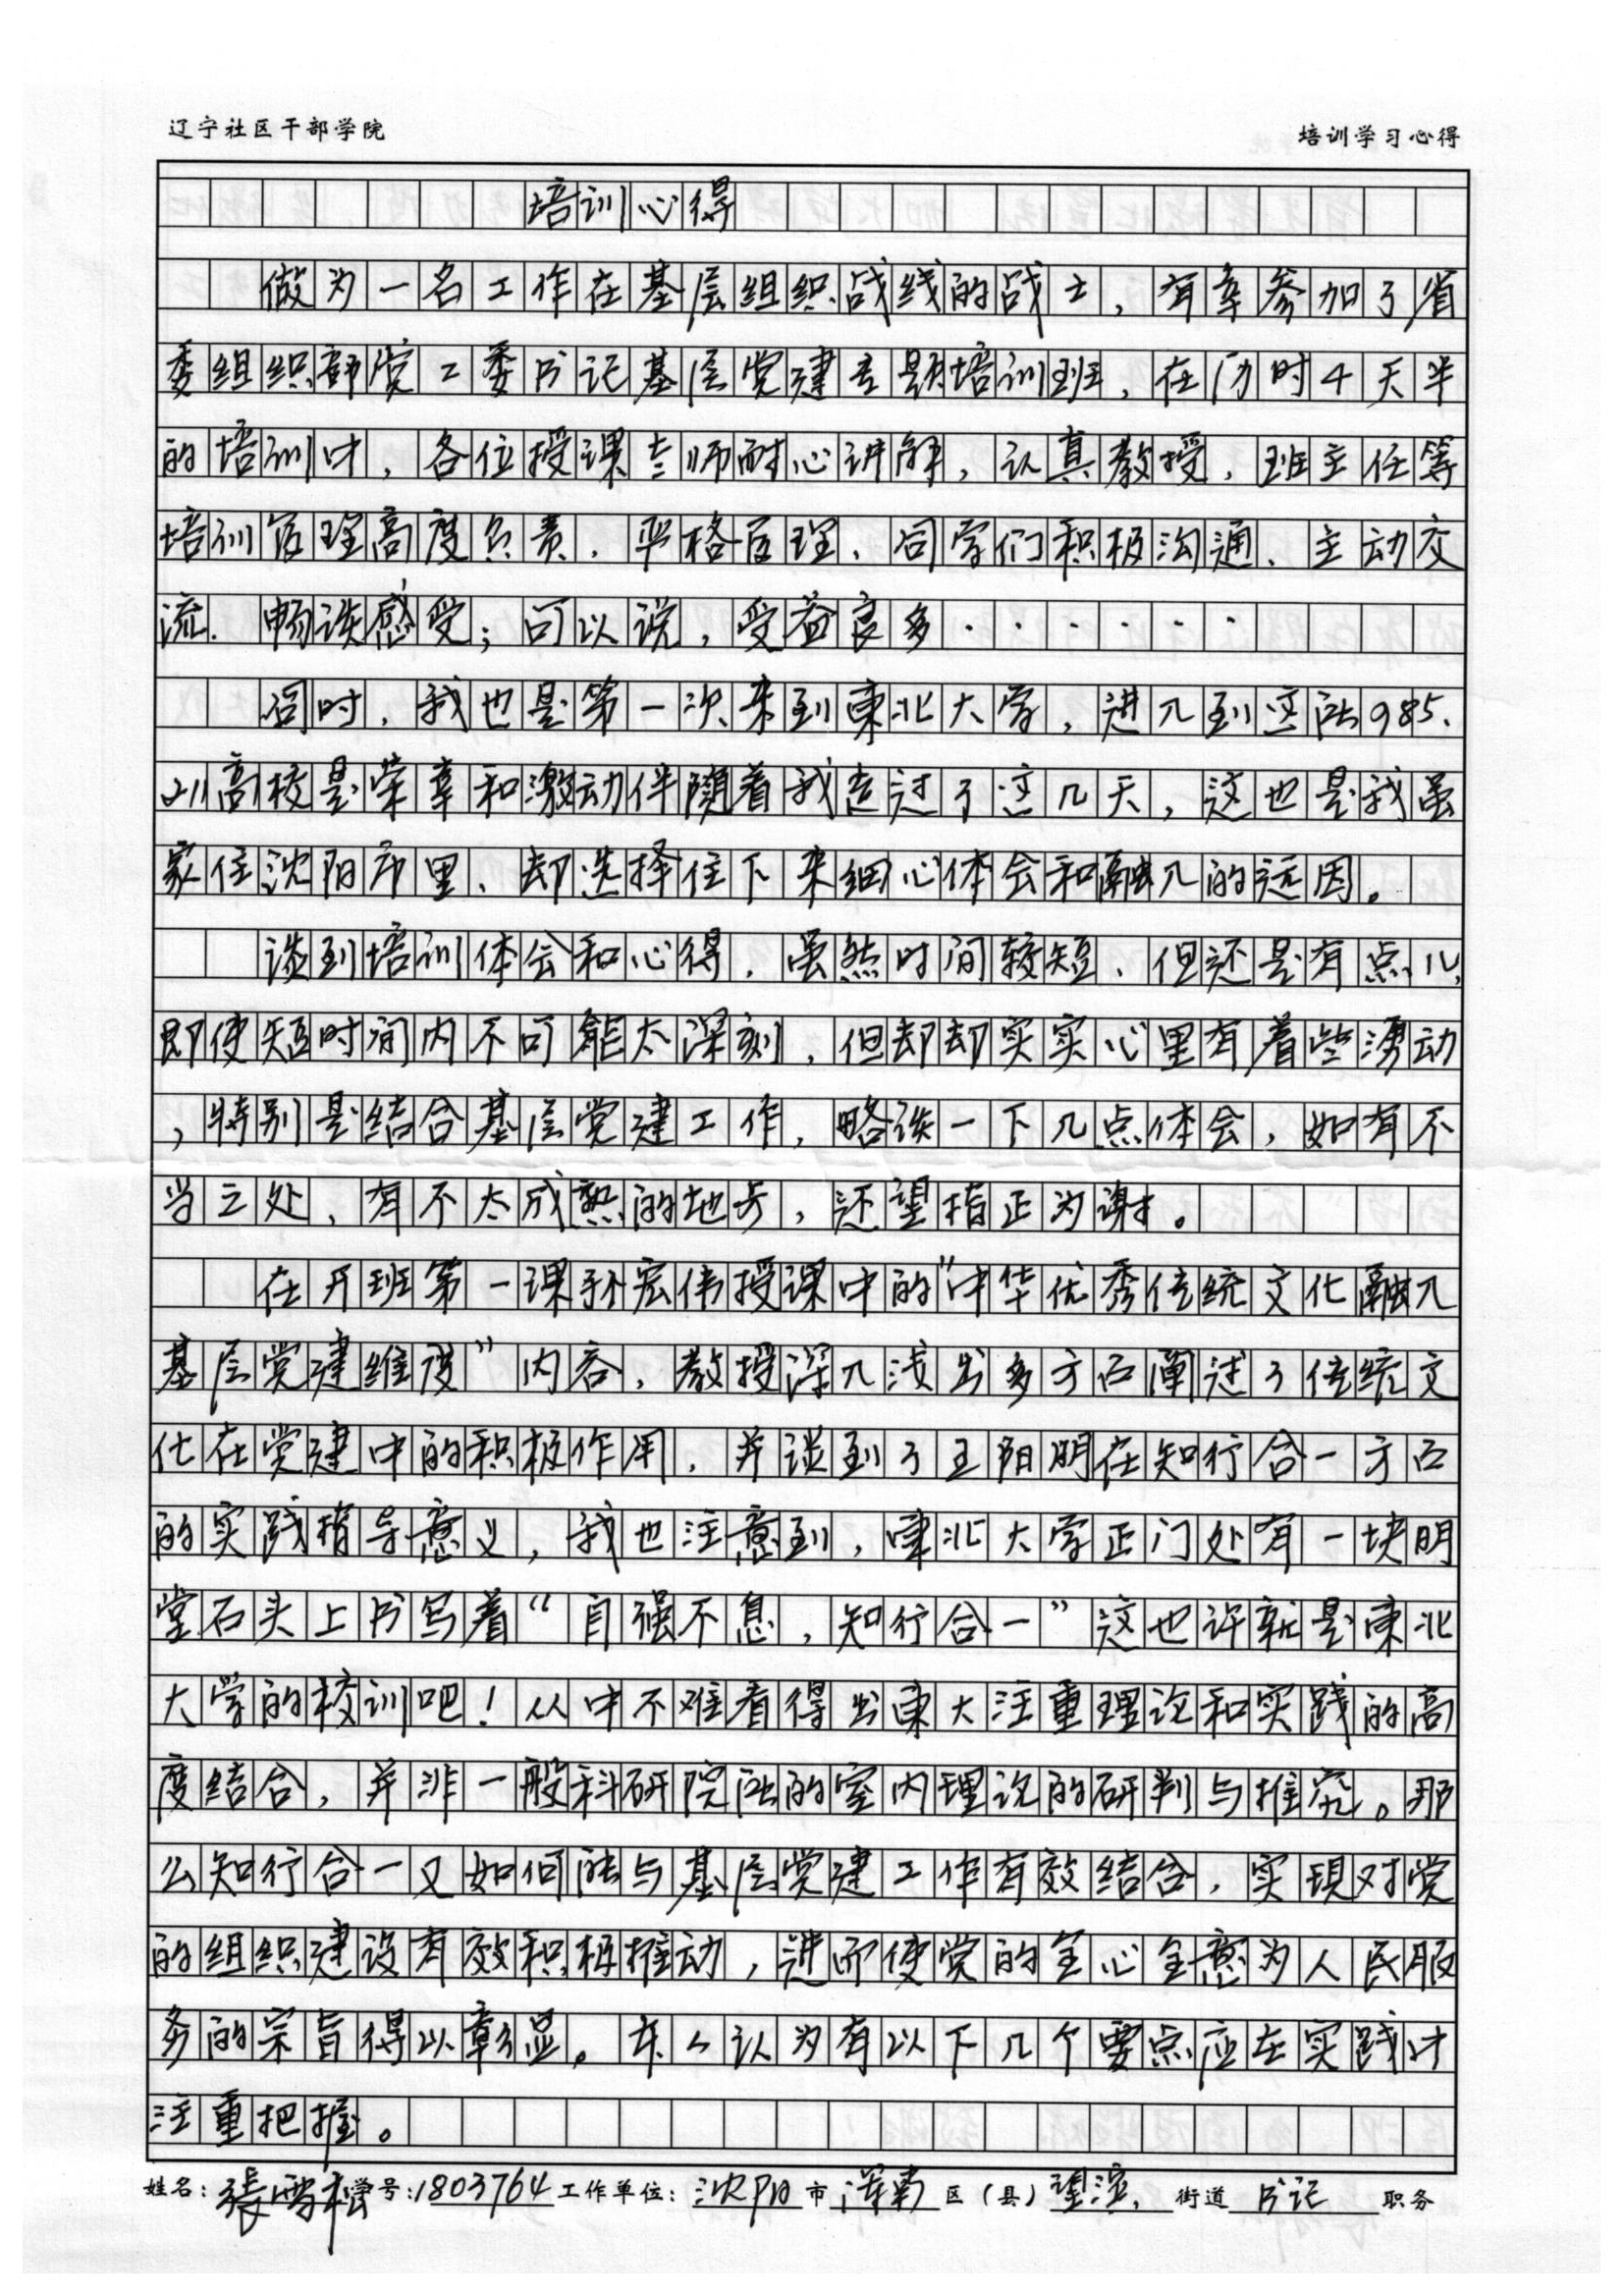 辽宁社区干部学院 培训学习心得
培训心得
做为一名工作在基层组织战线的战士，有幸参加了省
委组织部党工委书记基层党建专题培训班，在历时4天半
的培训中，各位授课老师耐心讲解，认真教授，班主任等
培训管理高度负责，严格管理、同学们积极沟通、主动交
流．畅谈感受；可以说，受益良多······
同时，我也是第一次来到東北大学，进入到这所985、
211高校是荣幸和激动伴随着我走过了这几天，这也是我虽
家住沈阳市里、却选择住下来细心体会和融入的原因。
谈到培训体会和心得，虽然时间较短、但还是有点儿，
即使短时间内不可能太深刻，但却却实实心里有着些湧动
，特别是结合基层党建工作，略谈一下几点体会，如有不
当之处、有不太成熟的地步，还望指正为谢。
在开班第一课孙宏伟授课中的“中华优秀传统文化融入
基层党建维度”内容，教授深入浅出多方面阐述了传统文
化在党建中的积极作用，并谈到了王阳明在知行合一方面
的实践指导意义，我也注意到，東北大学正门处有一块明
堂石头上书写着“自强不息，知行合一”这也许就是東北
大学的校训吧！从中不难看得出東大注重理论和实践的高
度结合，并非一般科研院所的室内理论的研判与推究。那
么知行合一又如何能与基层党建工作有效结合，实现对党
的组织建设有效积极推动，进而使党的全心全意为人民服
务的宗旨得以彰显。本人认为有以下几个要点应在实践中
注重把握。
姓名：張雪松 学号：1803764 工作单位：沈阳 市 浑南 区（县）望滨 街道 书记 职务